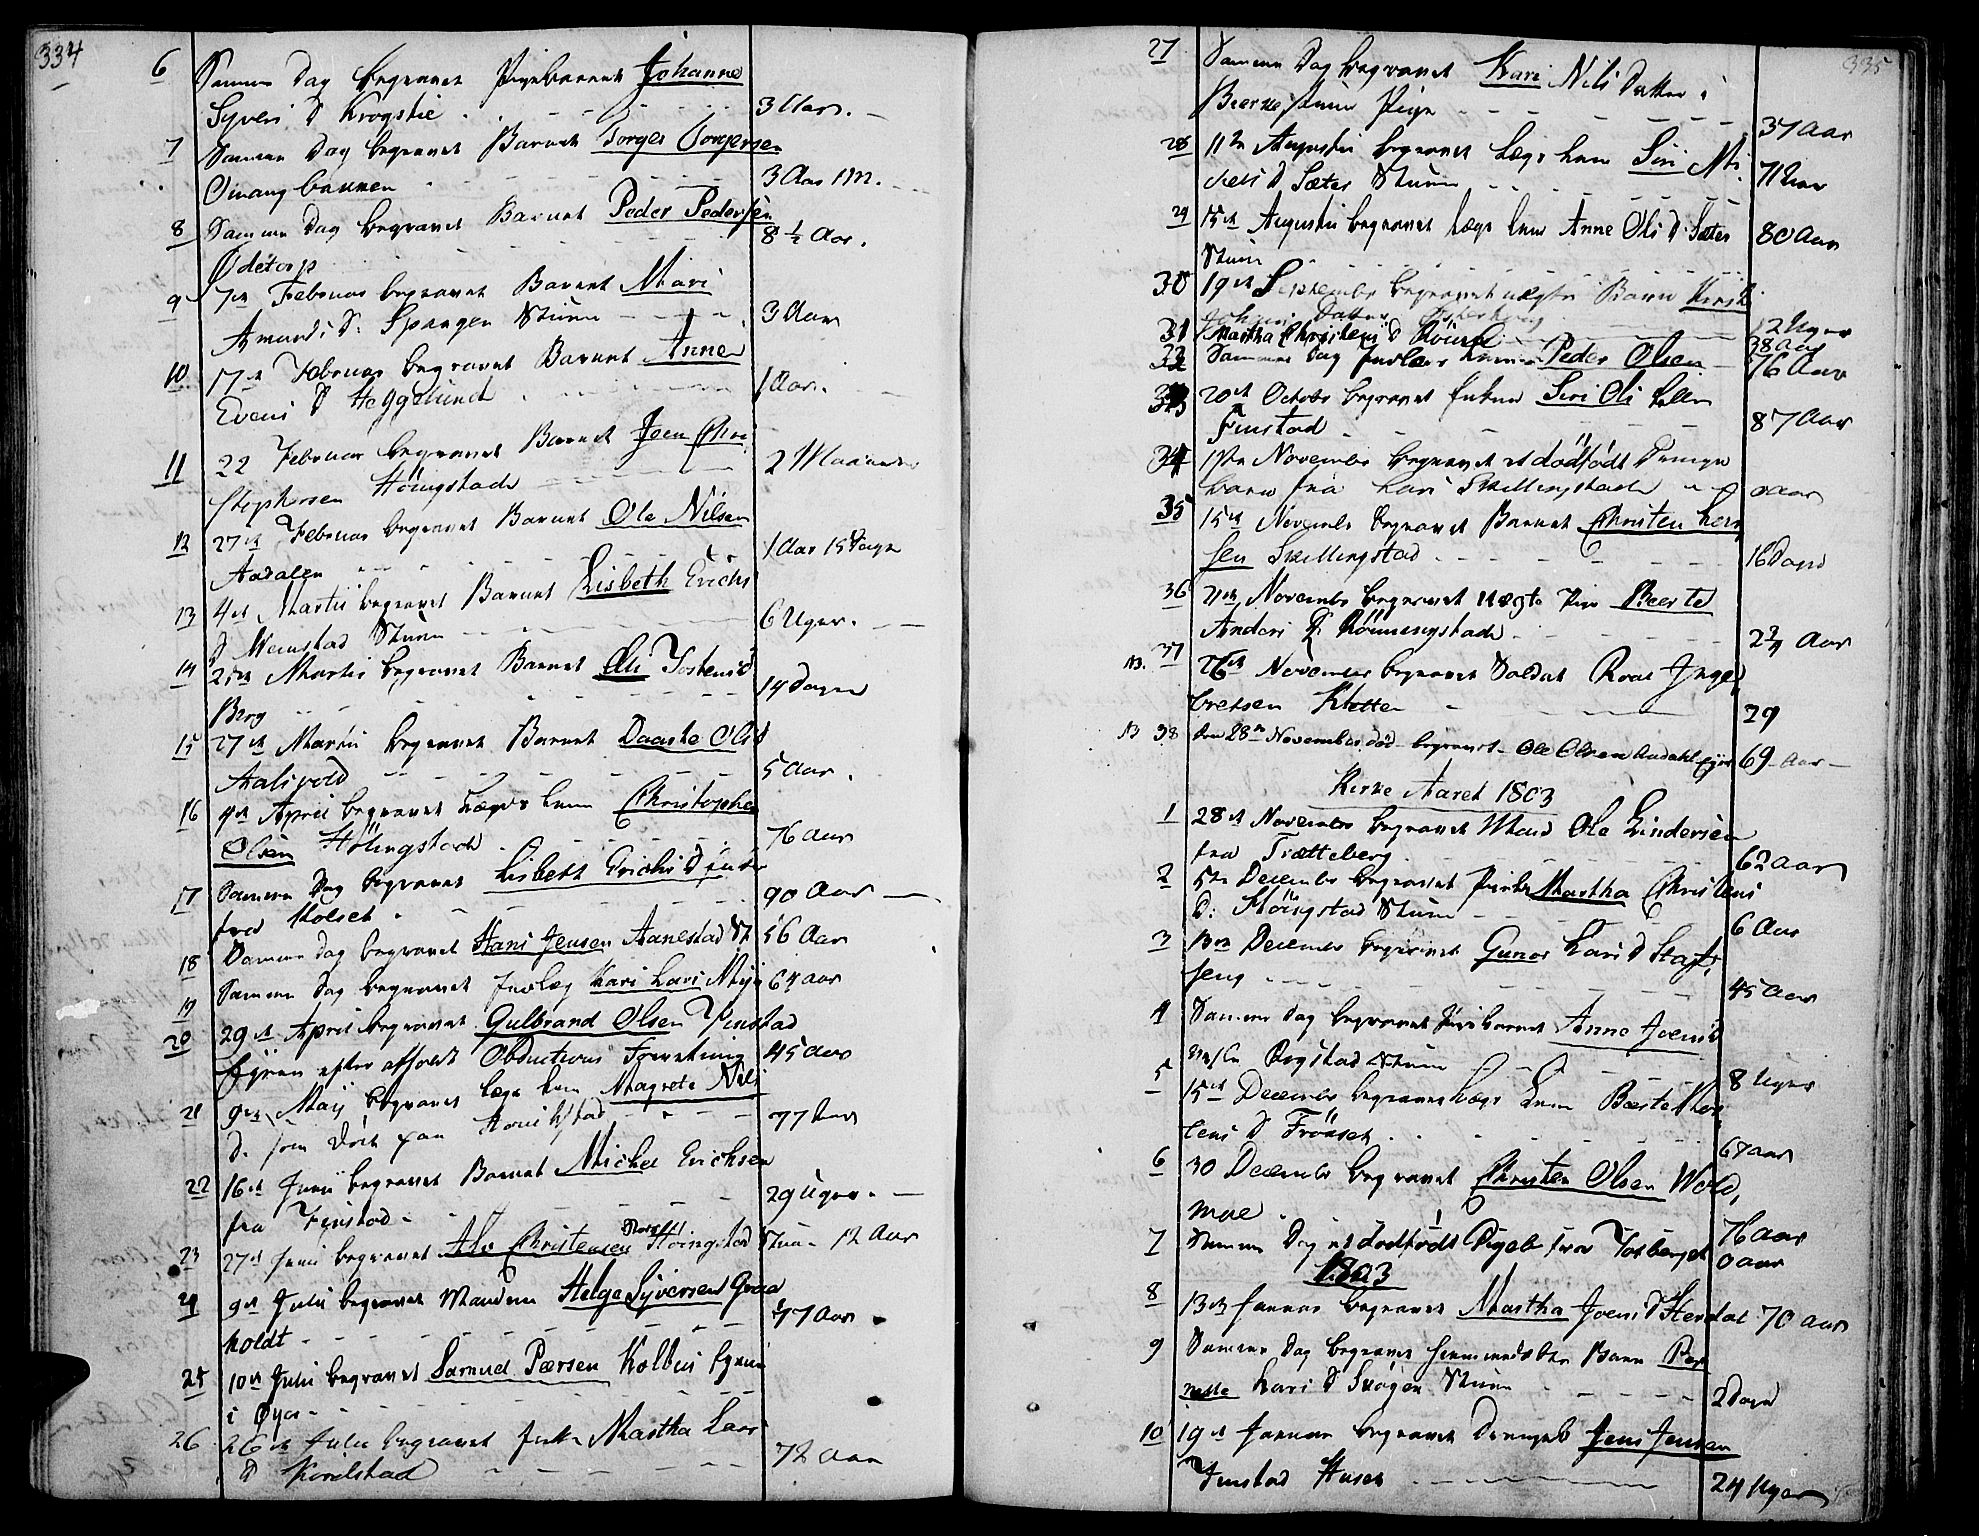 334
6 Samme Dag begravet Pigebarnet Johanne
Syveri D Krogstie 3 Aar.
7 Samme Dag begravet Barnet Torger Torgersen
3 Aar 1 M.
8 Samme Dag begravet Barnet Peder Pedersen
Ödetorp 8 1/2 Aar.
9 7de Februar begravet Barnet Mari
Amunds D: Spangen Stuen 3 Aar
10 17de Februar begravet Barnet Anne
Eveni D Heggelund 1 Aar.
11 22 Februar begravet Barnet Joen Chri
stophersen Höingstad 2 Maaneder
12 27de Februar begravet Barnet Ole Nilsen
Aadalen 1 Aar 15 Dage
13 4de Martii begravet Barnet Lisbeth Erichs
D Stuen 6 Uger.
14 21de Martii begravet Barnet Oli Tostensd
Berg 14 Dage
15 27de Martii begravet Barnet Daarte Ols D
5 Aar.
16 4de April begravet Lægs Lem Christopher
Olsen Höingstad 76 Aar
17 Samme Dag begravet Lisbeth Erichs D
fra Holset 90 Aar
18 Samme Dag begravet Hans Jensen Aanestad St 56 Aar
19 Samme Dag begravet Inderlæg Kari Lars 64 Aar
20 29de April begravet Gulbrand Olsen Finstad
Eyren efter afholdt Obductions Forretning 45 Aar
21 9de Maij begravet Lægs Lem Magrete Nils
D. som döde paa 77 Aar
22 16de Junii begravet Barnet Michel Erichsen
fra Finstad 29 Uger.
23 27de Junii begravet Christensen Höingstad Stuen 12 Aar
24 9de Julii begravet Manden Helge Syversen Graa
holdt 47 Aar
25 10de Julii begravet Samuel Pærsen Kolbus Eyren
i Öyer
26 26de Julii begravet Martha Lars
D 72 Aar
335
27 Samme Dag begravet Kari Nils Datter i
Bierke Stuen Pige 37 Aar
28 11te Augustii begravet Lægs Lem Siri Mi
chels D Sæter Stuen 71 Aar
29 15de Augustii begravet Lægs Lem Anne Ols D. Sæter
Stuen 80 Aar
30 19de Septembr begravet uægte Barn
Datter 12 Uger
31 Martha Christens D 38 Aar
32 Samme Dag Inderlæg Peder Olsen 76 Aar
33 20de Octobr begravet Enken Siri Oli
Finstad 87 Aar
34 1ste Novembr begravet et dödfödt Drenge
barn fra Lars Skillingstad 0 Aar
35 15de Novembr begravet Barnet Christen Lar
sen Skillingstad 16 Dage
36 21de Novembr begravet uægte Pige Beerte
Anders D. Rönningstad 2 3/4 Aar
NB. 37 26de Novembr begravet Soldat Roar Inge
bretsen Kletten 29
NB 38 den 28de November död begravet Ole Olsen Aadahl Eyer 69 Aar
Kirke Aaret 1803
1 28de Novembr begravet Mand Ole Lindersen
fra Trætteberg 62 Aar
2 5te Decembr begravet Martha Christens
D: Höingstad Stuen 6 Aar
3 13de Decembr begravet Gunor Lars D Stafs
eng 45 Aar
4 Samme Dag begravet Pigebarnet Anne Joens D
Rogstad Stuen 8 Uger
5 15de Decembr begravet Lægs Lem Bærte
D Fröiset 68 Aar
6 30 Decembr begravet Christen Olsen Wold
moe 76 Aar
7 Samme Dag et dödfödt Pigeb fra Tosberget 0 Aar
1803
8 13de Januar begravet Martha Joens D 70 Aar
9 Samme Dag begravet hiemmedöbte Barn Per
nelle Lars D Skogen Stuen 2 Dage
10 19de Januar begravet Drengeb Jens Jensen
Finstad Huset 24 Uger